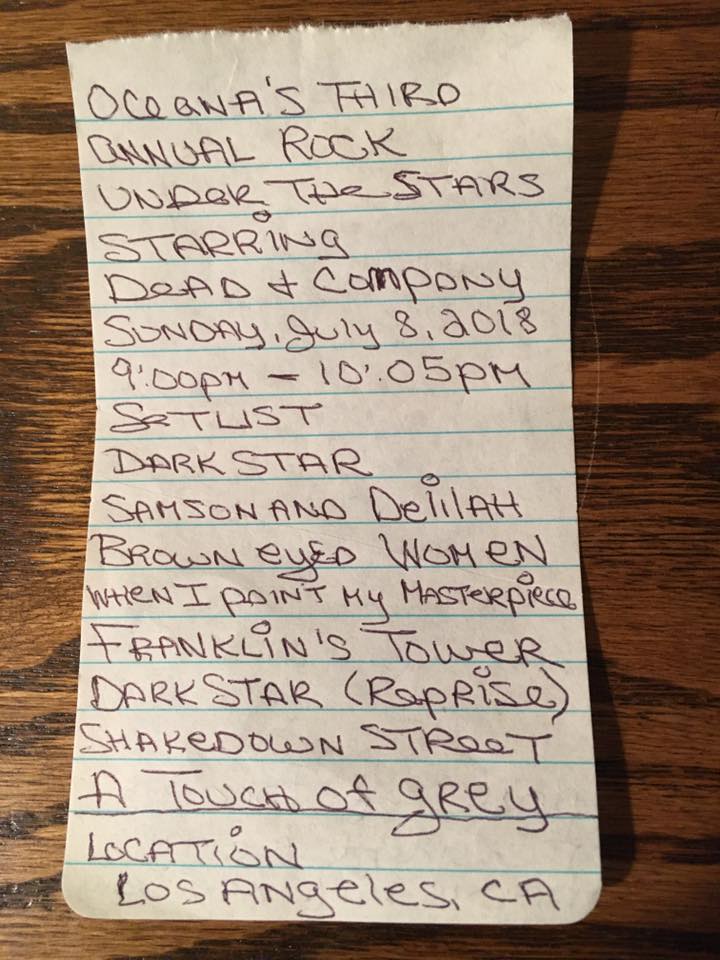 OCEANA'S THIRD
ANNUAL ROCK
UNDER THE STARS
STARRING
DEAD & COMPANY
SUNDAY, July 8, 2018
9:00pm - 10:05pm
SETLIST
DARK STAR
SAMSON AND DELILAH
BROWN EYED WOMEN
WHEN I PAINT MY MASTERPIECE
FRANKLIN'S TOWER
DARK STAR (REPRISE)
SHAKEDOWN STREET
A TOUCH OF GREY
LOCATION
LOS ANGELES, CA